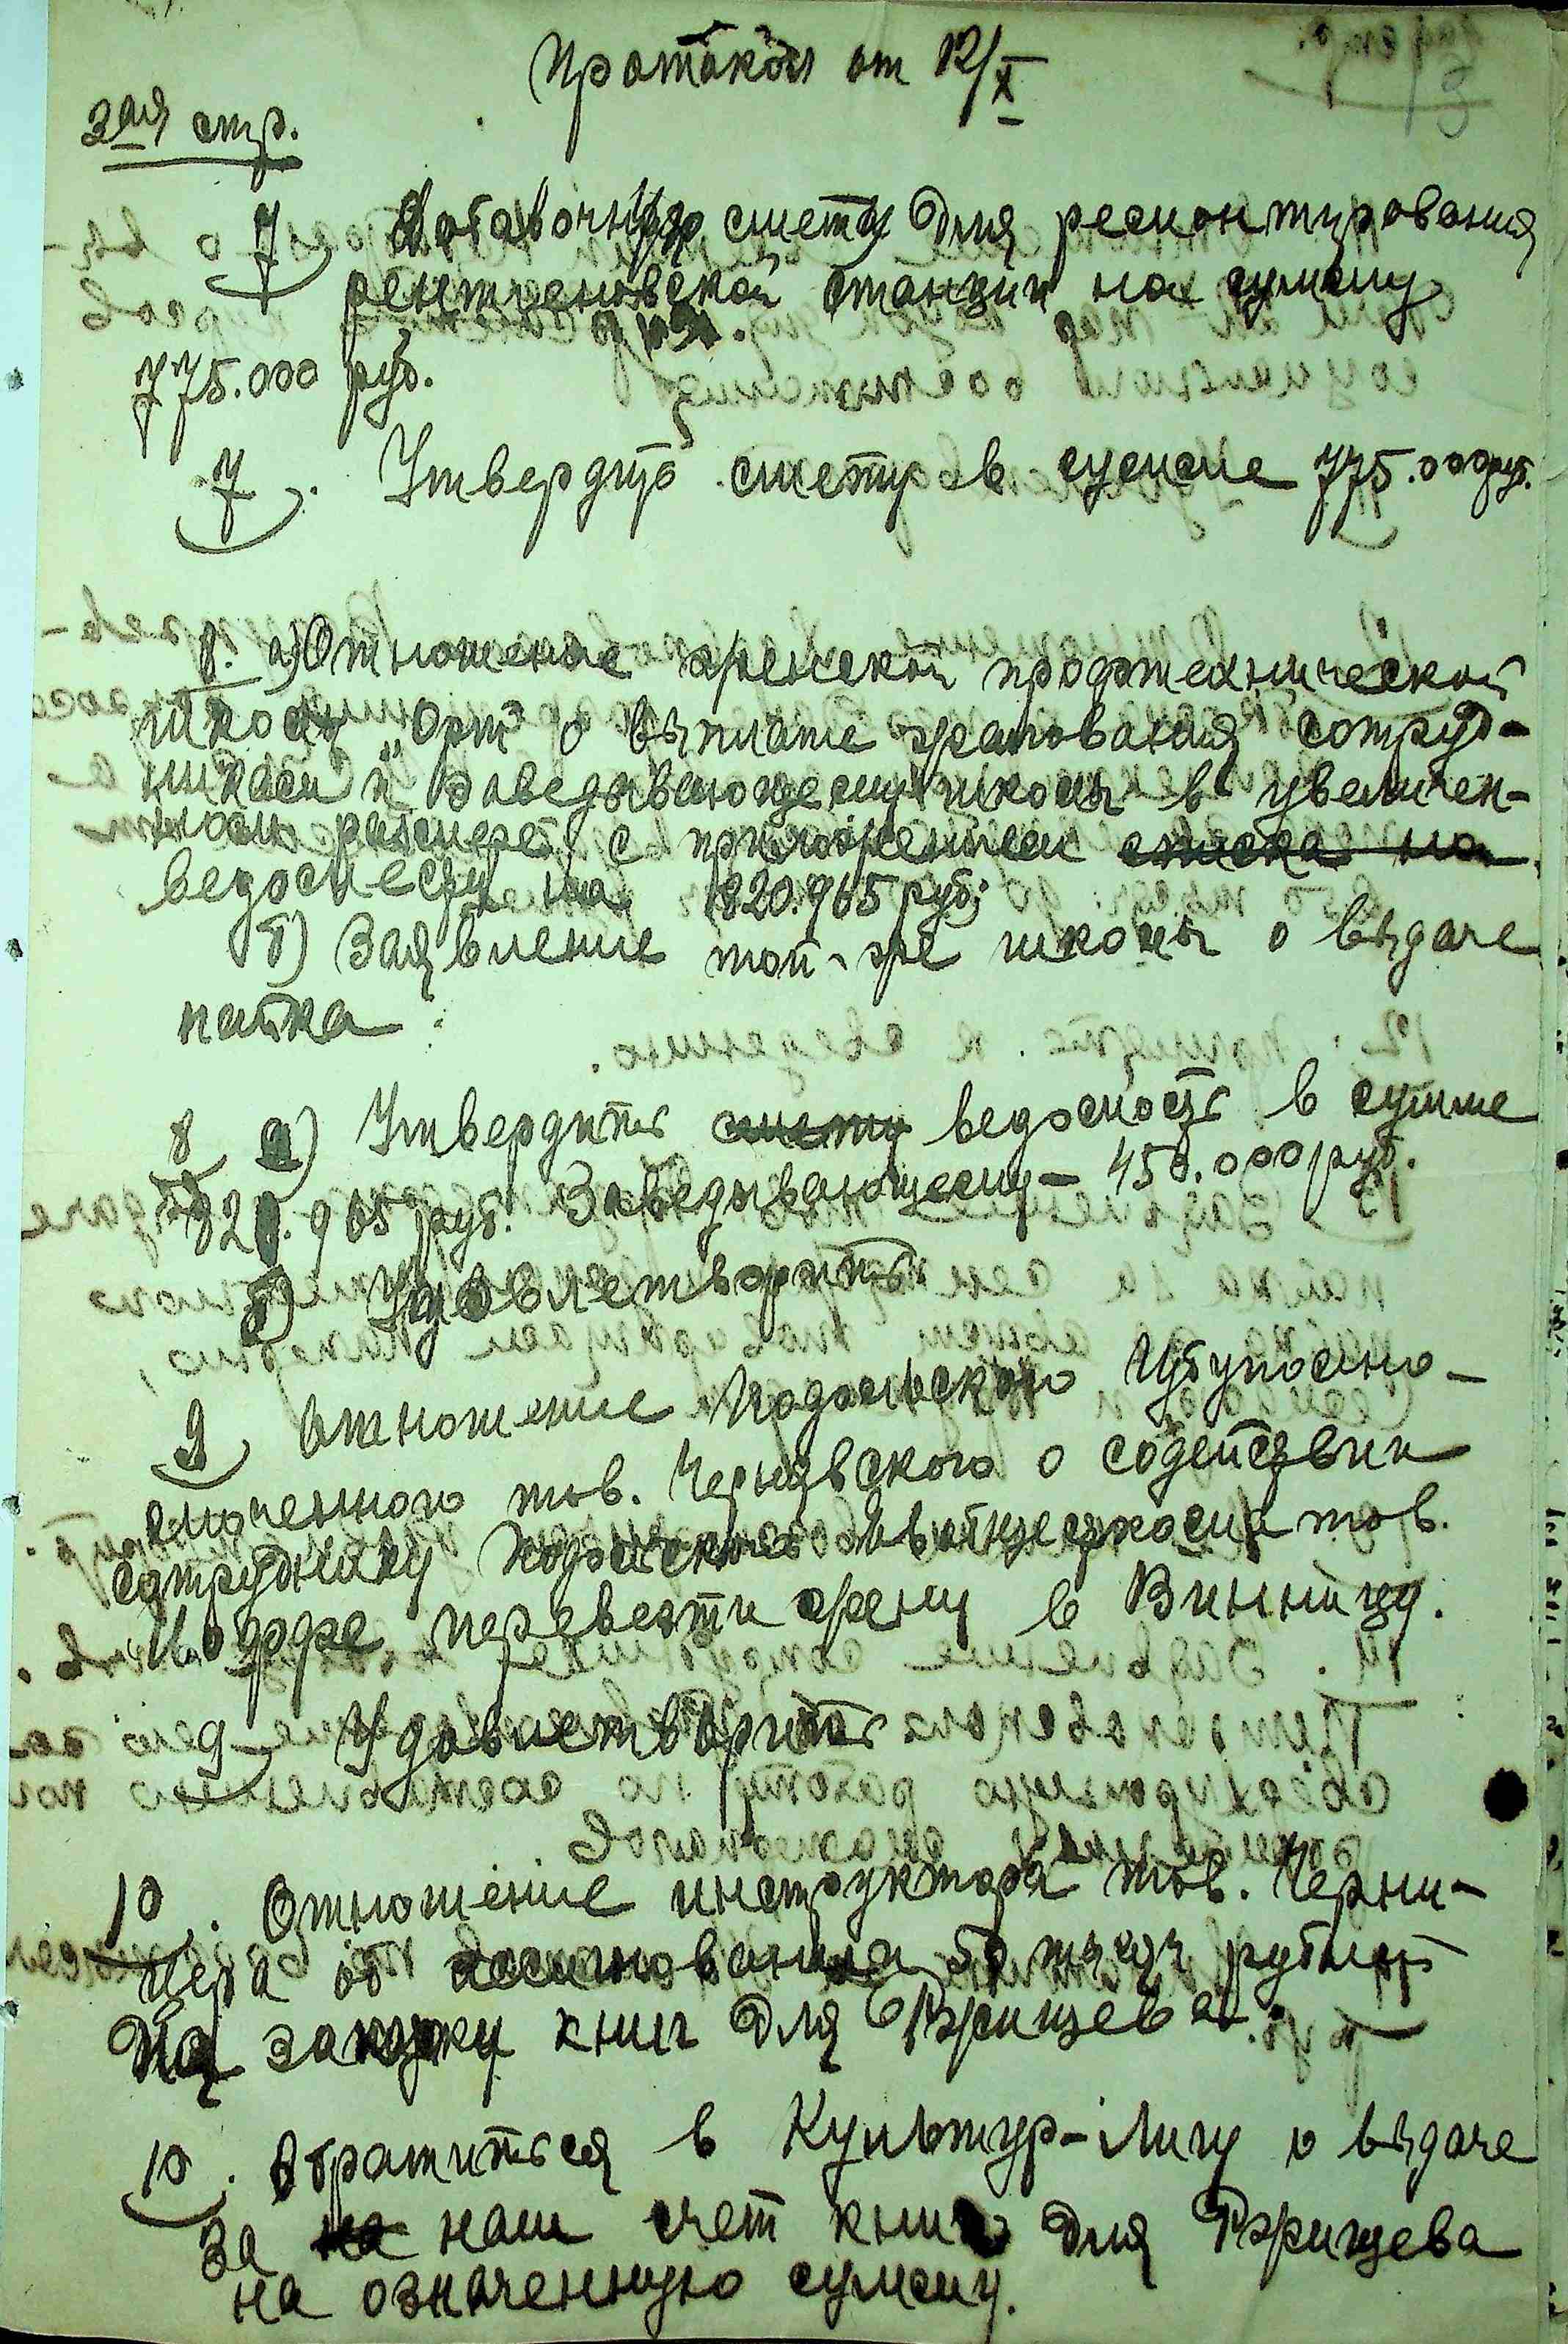 Протокол от 12/X
3ая стр.
7 Добавочную смету для ремонтирования
рентгеновской станции на сумму
775.000 руб.
7. Утвердить смету в сумме 775.000 руб.
8. а) Отношение женской профтехнической
школы "Орт" о выплате жалования сотруд-
никам и заведывающему школы в увеличен-
ном размере с приложением списка на
ведомости на 820.965 руб;
б) Заявление той-же школы о выдаче
пайка.
8 а) Утвердить смету ведомость в сумме
820.965 руб. Заведывающему – 450.000 руб.
б) Удовлетворить
9. Отношение Подольского Губуполно-
моченного тов. Чернявского о содействии
сотруднику тов.
Иоффе перевезти жену в Винницу.
9. Удовлетворить
10. Отношение инструктора тов. Черни-
чера об ассигновании 50 тысяч рублей
на закупку книг для Ржищева.
10. Обратиться в Культур-Лигу о выдаче
за на наш счет книг для Ржищева
на означенную сумму.